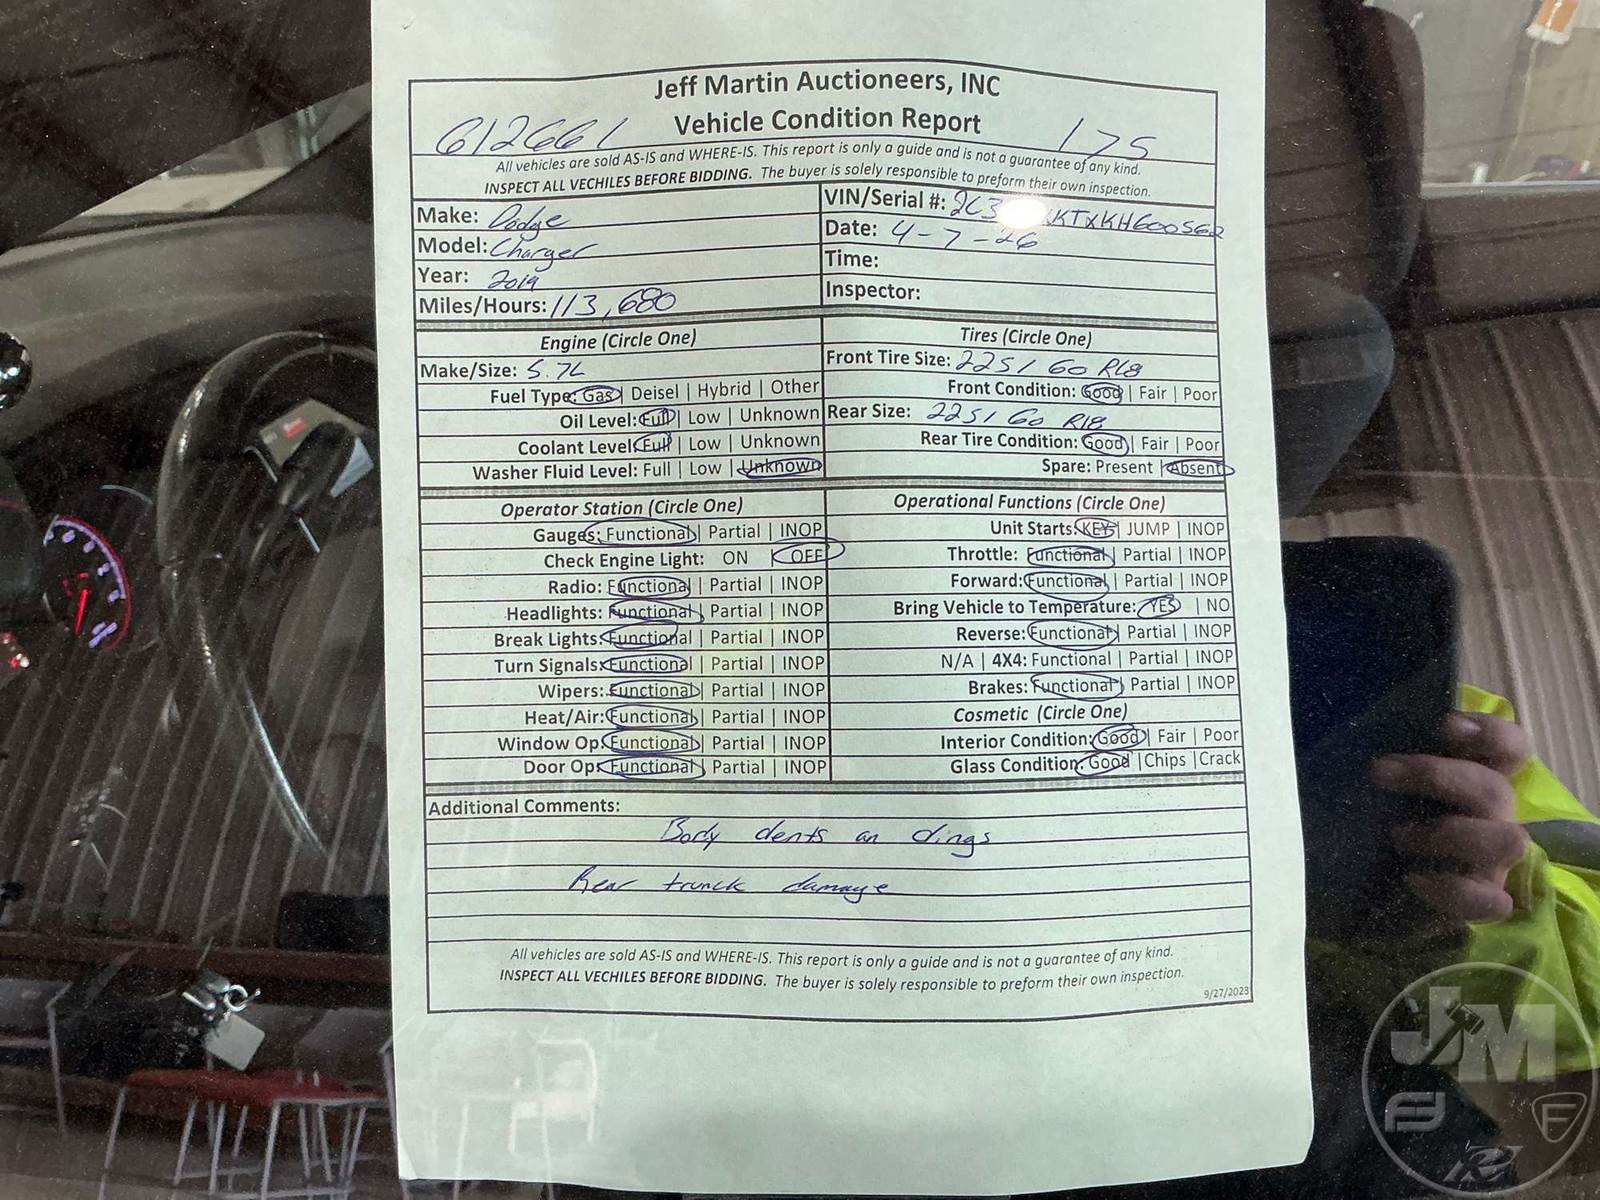 Jeff Martin Auctioneers, INC
612661 Vehicle Condition Report 175
All vehicles are sold AS-IS and WHERE-IS. This report is only a guide and is not a guarantee of any kind.
INSPECT ALL VECHILES BEFORE BIDDING. The buyer is solely responsible to preform their own inspection.
Make: Dodge
Model: Charger
Year: 2019
Miles/Hours: 113,680
VIN/Serial #: 2C3 KTXKH600562
Date: 4-7-26
Time:
Inspector:
Engine (Circle One)
Make/Size: 5.7L
Fuel Type: Gas | Deisel | Hybrid | Other
Oil Level: Full | Low | Unknown
Coolant Level: Full | Low | Unknown
Washer Fluid Level: Full | Low | Unknown
Tires (Circle One)
Front Tire Size: 225/60 R18
Front Condition: Good | Fair | Poor
Rear Size: 225/60 R18
Rear Tire Condition: Good | Fair | Poor
Spare: Present | Absent
Operator Station (Circle One)
Gauges: Functional | Partial | INOP
Check Engine Light: ON | OFF
Radio: Functional | Partial | INOP
Headlights: Functional | Partial | INOP
Break Lights: Functional | Partial | INOP
Turn Signals: Functional | Partial | INOP
Wipers: Functional | Partial | INOP
Heat/Air: Functional | Partial | INOP
Window Op: Functional | Partial | INOP
Door Op: Functional | Partial | INOP
Operational Functions (Circle One)
Unit Starts: KEY | JUMP | INOP
Throttle: Functional | Partial | INOP
Forward: Functional | Partial | INOP
Bring Vehicle to Temperature: YES | NO
Reverse: Functional | Partial | INOP
N/A | 4X4: Functional | Partial | INOP
Brakes: Functional | Partial | INOP
Cosmetic (Circle One)
Interior Condition: Good | Fair | Poor
Glass Condition: Good | Chips | Crack
Additional Comments:
Body dents an dings
Rear trunck damage
All vehicles are sold AS-IS and WHERE-IS. This report is only a guide and is not a guarantee of any kind.
INSPECT ALL VECHILES BEFORE BIDDING. The buyer is solely responsible to preform their own inspection.
9/27/2023
JM